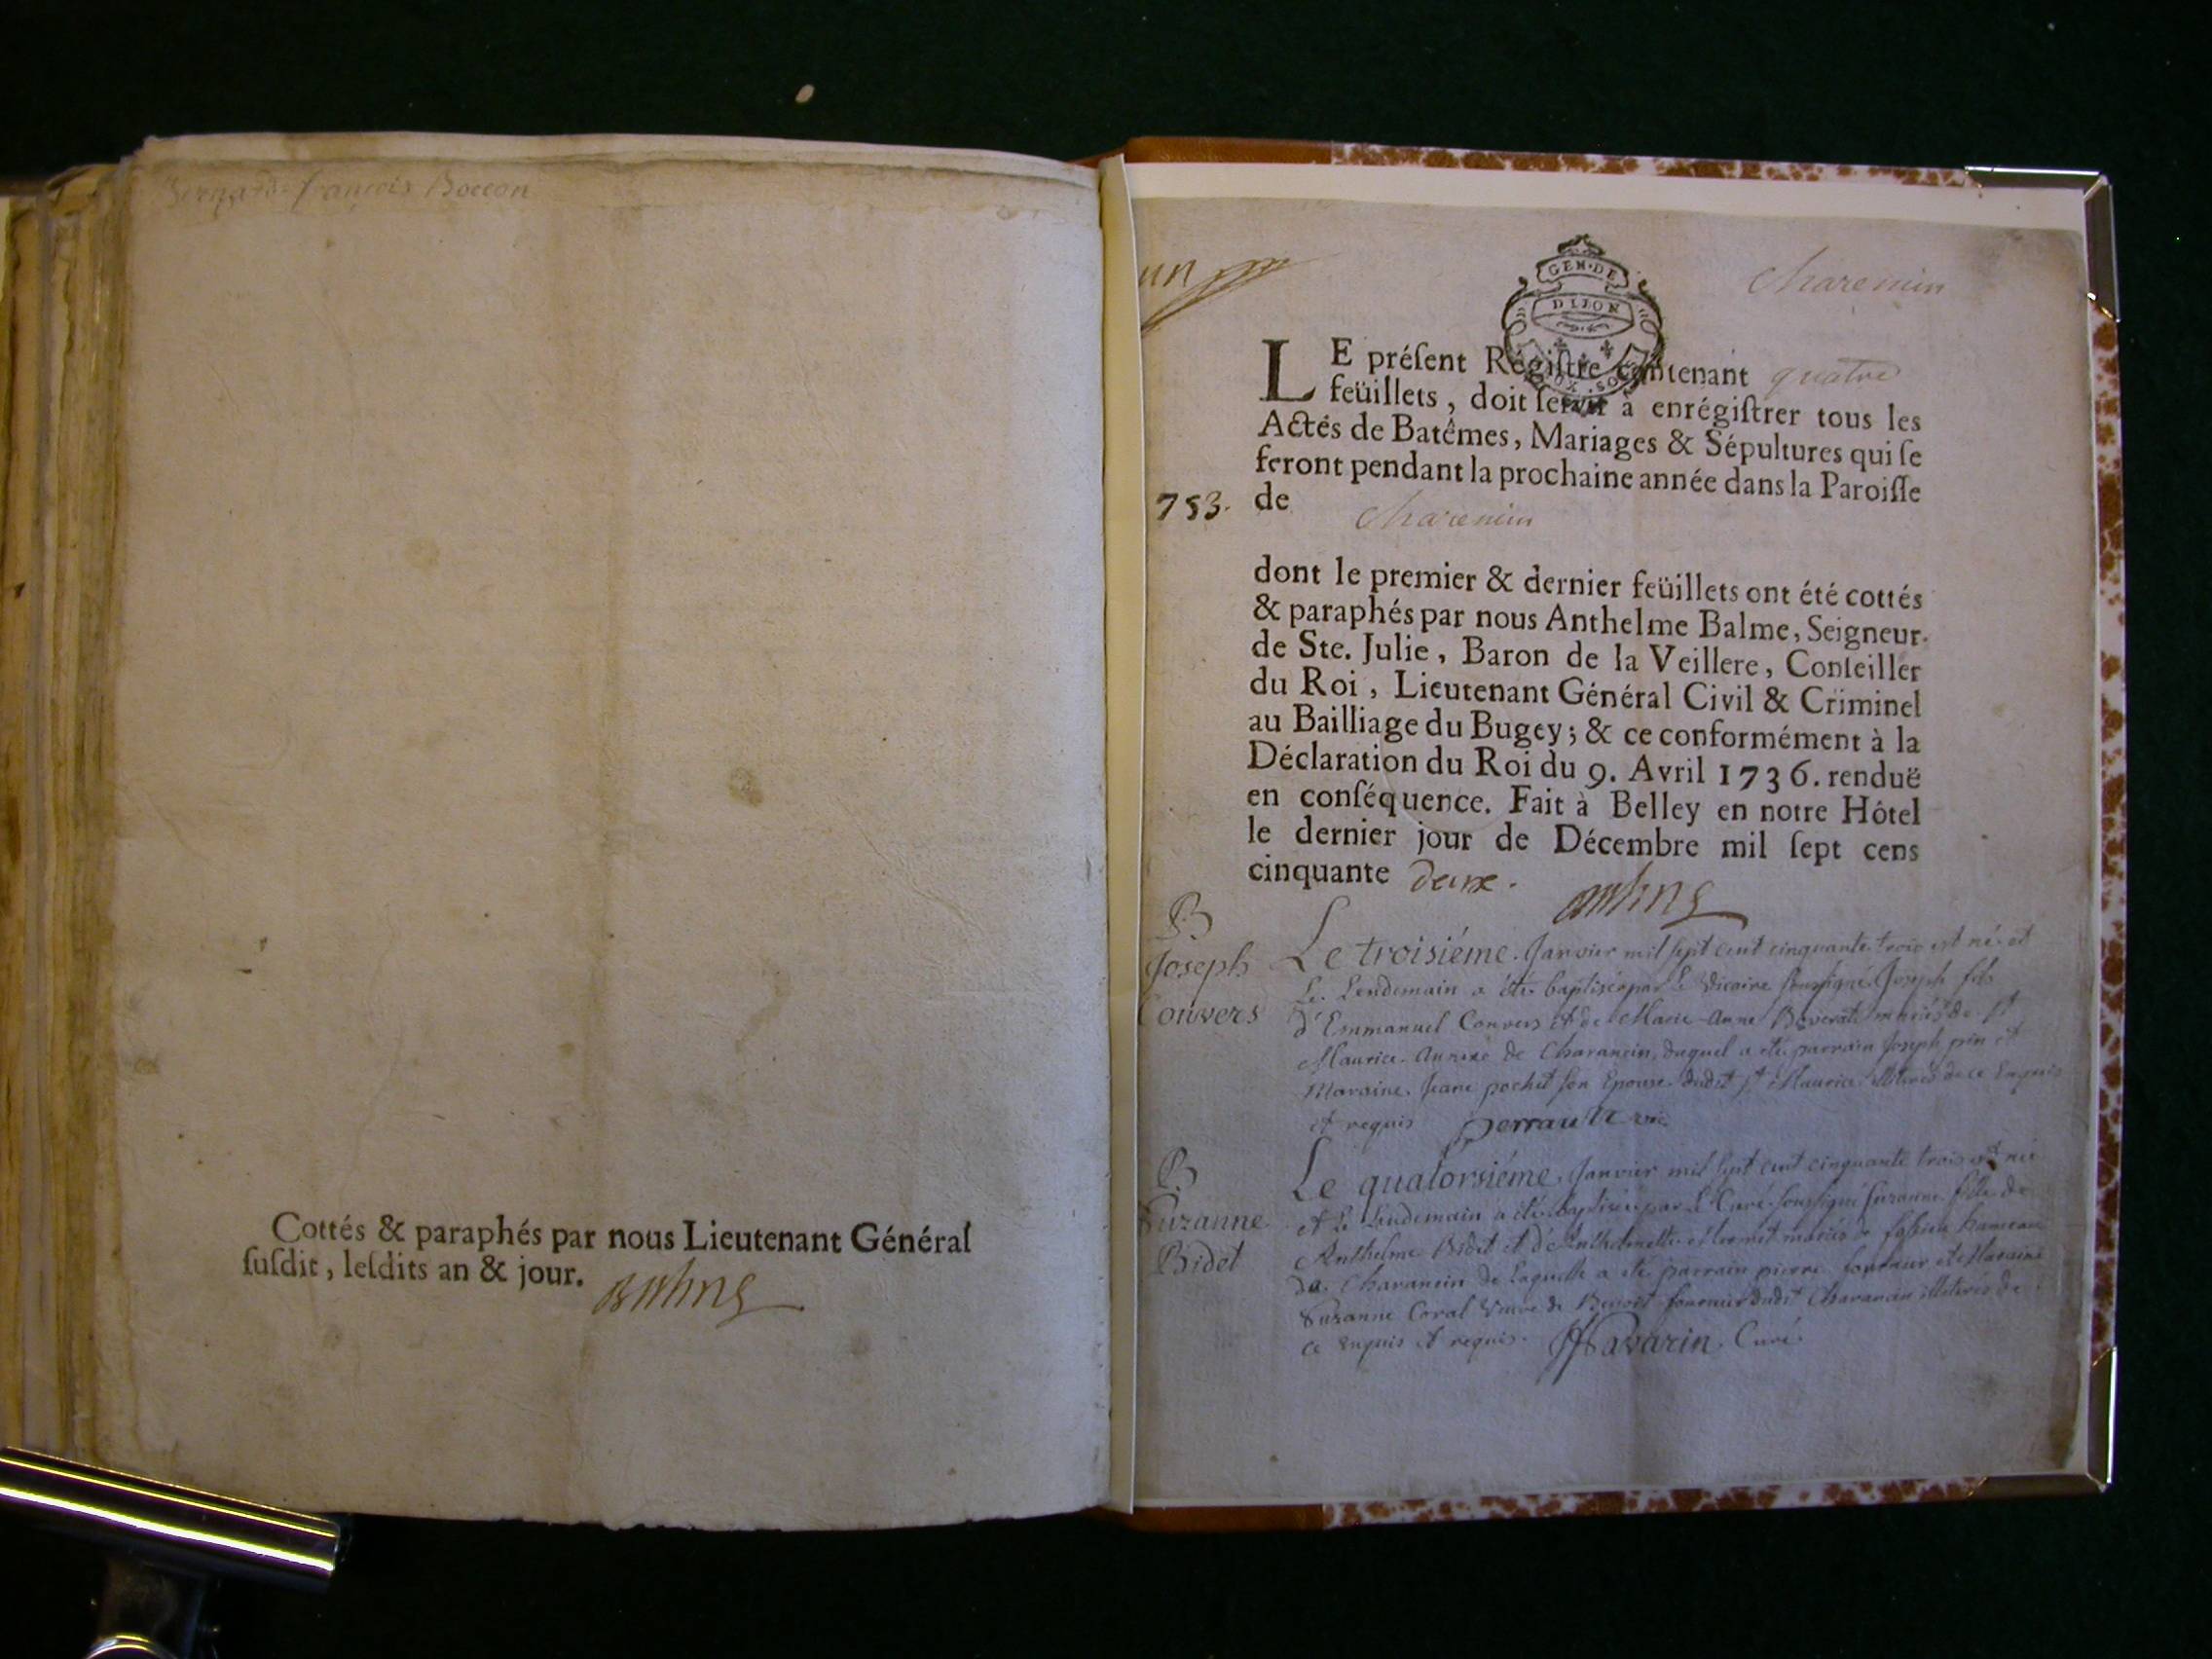 Bernard françois Boccon
Cottés & paraphés par nous Lieutenant Général
ſuſdit, leſdits an & jour.
un
GEN·DE
DIJON
Charencin
LE préſent Régiſtre contenant quatre
feüillets, doit ſervir à enrégiſtrer tous les
Actes de Batêmes, Mariages & Sépultures qui ſe
feront pendant la prochaine année dans la Paroiſſe
753. de Charencin
dont le premier & dernier feüillets ont été cottés
& paraphés par nous Anthelme Balme, Seigneur
de Ste. Julie, Baron de la Veillere, Conſeiller
du Roi, Lieutenant Général Civil & Criminel
au Bailliage du Bugey; & ce conformément à la
Déclaration du Roi du 9. Avril 1736. renduë
en conſéquence. Fait à Belley en notre Hôtel
le dernier jour de Décembre mil ſept cens
cinquante deux.
B
Joseph
Convers
Le troisiéme Janvier mil sept cent cinquante trois est né et
le lendemain a été baptisé par le vicaire soussigné Joseph fils
d'Emmanuel Convers et de Marie Anne mariés de St
Maurice annexe de Charancin, duquel a été parrain Joseph pin et
Maraine Jeane pochet son Epouse dudit St Maurice illiterés de ce Enquis
et requis perrault vic
B
Suzanne
Bidet
Le quatorsiéme Janvier mil sept cent cinquante trois est née
et le lendemain a été baptisée par le Curé soussigné Suzanne fille de
Anthelme Bidet et d'Anthelmette mariés de hameau
de Charancin de laquelle a été parrain pierre et Maraine
Suzanne Coral veuve de Benoit dudit Charancin illiterés de
ce enquis et requis. Savarin Curé